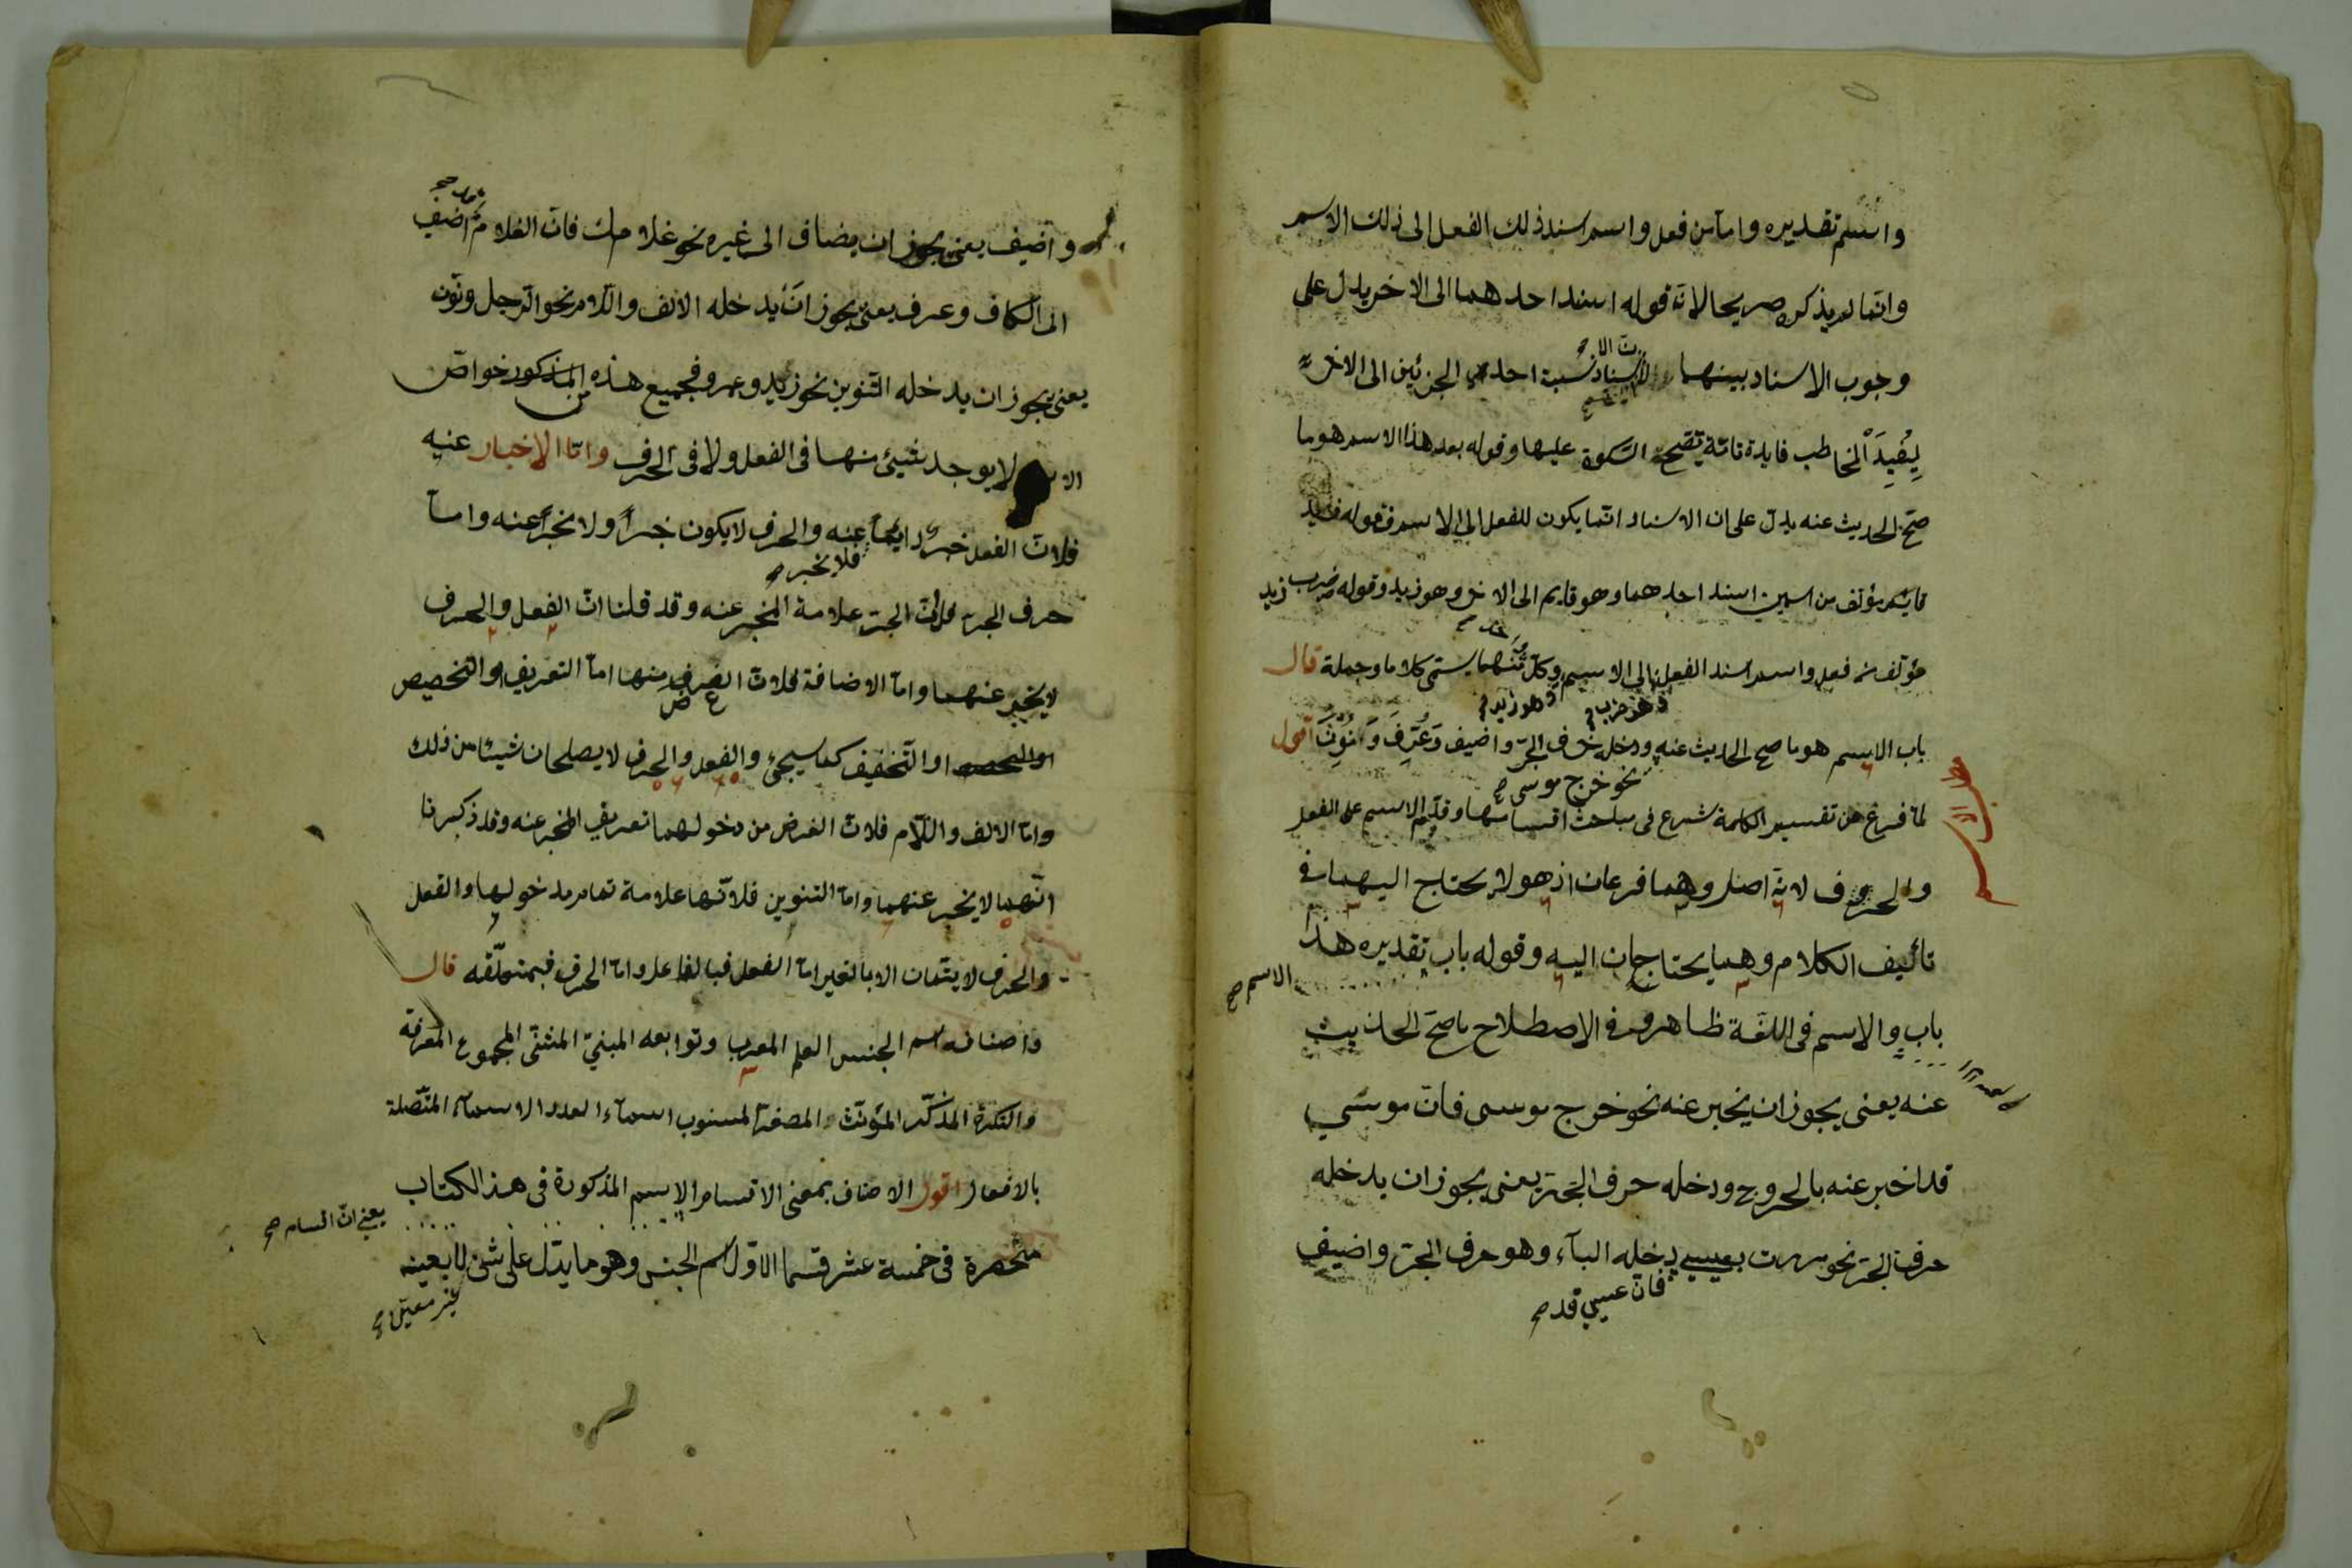 واسم تقديره واما من فعل واسم اسند ذلك الفعل الى ذلك الاسم
وانما لم يذكره صريحا لان قوله اسند احدهما الى الاخر يدل على
وجوب الاسناد بينهما الاسناد نسبة احد الجزئين الى الاخر
لِيُفيدَ المخاطب فايدة تامّة يصّح السّكوة عليها وقوله بعد هذا الاسم هو ما
صحّ الحديث عنه يدلّ على ان الاسناد انّما يكون للفعل الى الاسم فقوله زيد
قايم مؤلف من اسمين اسند احدهما وهو قايم الى الاخر وهو زيد وقوله ضرب زيد
مؤلف من فعل واسم اسند الفعل الى الاسم وكلّ منهما يسمّى كلاما وجملة قال
وهو ضرب
وهو زيد
باب الاسم هو ما صح الحديث عنه ودخله حرف الجرّ واضيف وَعُرِّفَ وَنُوِّنَ اقول
نحو خرج موسى صح
لمّا فرغ من تقسيم الكلمة شرع فى مباحث اقسامها وقدّم الاسم على الفعل
مطلب الاسم
والحروف لانه اصل وهما فرعان اذ هو لا يحتاج اليهما فى
تأليف الكلام وهما يحتاجان اليه وقوله باب تقديره هذا
باب والاسم فى اللغة ظاهر وفى الاصطلاح ما صحّ الحديث
الاسم صح
عنه يعنى يجوز ان يخبر عنه نحو خرج موسى فانّ موسى
قد اخبر عنه بالخروج ودخله حرف الجرّ يعنى يجوز ان يدخله
حرف الجرّ نحو مررت بعيسى دخله الباء وهو حرف الجرّ واضيف
فانّ عيسى قد صح
واضيف يعنى يجوز ان يضاف الى غيره نحو غلامك فانّ الغلام اضيف
الى الكاف وعرف يعنى يجوز ان يدخله الالف واللام نحو الرجل ونون
يعنى يجوز ان يدخله التنوين نحو زيد وعمرو فجميع هذه المذكور خواصّ
لا يوجد شيئ منها فى الفعل ولا فى الحرف وامّا الاخبار عنه
فلانّ الفعل خبر دايماً عنه والحرف لا يكون خبراً ولا مخبراً عنه وامّا
فلا يخبر صح
حرف الجرّ فلانّ الجرّ علامة المخبر عنه وقد قلنا انّ الفعل والحرف
لا يخبر عنهما وامّا الاضافة فلانّ الغرض منها امّا التعريف او التخصيص
او التّخفيف كما سيجئ والفعل والحرف لا يصلحان شيئا من ذلك
وامّا الالف واللّام فلانّ الغرض من دخولهما تعريف المخبر عنه وقد ذكرنا
انّهما لا يخبر عنهما وامّا التنوين فلانّها علامة تمام مدخولها والفعل
والحرف لا يتمّان الا بالغير امّا الفعل فبالفاعل وامّا الحرف فبمتعلّقه قال
واصنافه اسم الجنس العلم المعرب وتوابعه المبنيّ المثنّى المجموع المعرفة
والنكرة المذكّر المؤنّث المصغّر المنسوب اسماء العدد الاسماء المتّصلة
بالافعال اقول الاصناف بمعنى الاقسام الاسم المذكورة فى هذا الكتاب
يعنى انّ اقسام صح
منحصرة فى خمسة عشر قسما الاوّل اسم الجنس وهو ما يدّل على شئ لا بعينه
غير معيّن صح